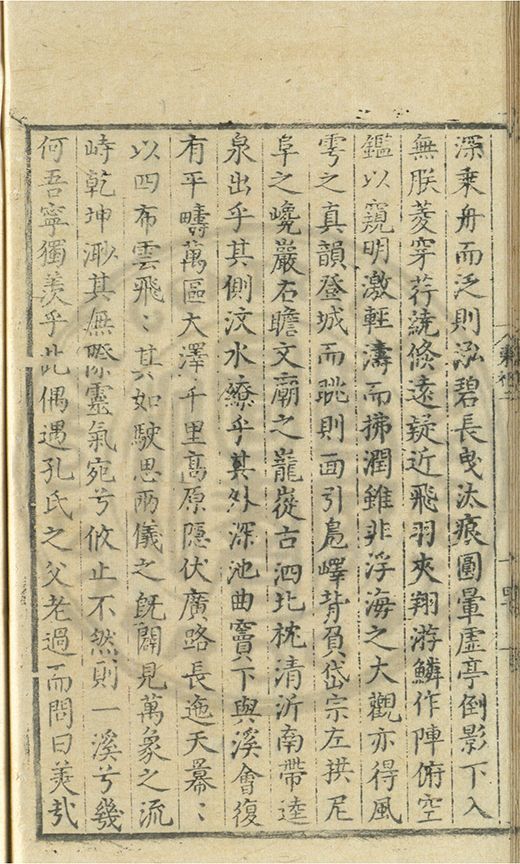 深乗舟而泛則泓碧長曳汰痕圓暈虚亭倒影下入
無朕菱穿荇繞倐遠疑近飛羽夾翔游鱗作陣俯空
鑑以窺明激輕濤而拂潤雖非浮海之大觀亦得風
雩之真韻登城而眺則面引鳬嶧背負岱宗左拱尼
阜之巉巖右瞻文廟之巃嵸古泗北枕清沂南帶逵
泉出乎其側汶水繚乎其外深池曲竇下與溪會復
有平疇萬區大澤千里高原隠伏廣路長迤天幕〻
以四布雲飛〻其如駛思兩儀之旣闢見萬象之流
峙乾坤渺其無際霊氣宛兮攸止不然則一溪兮幾
何吾寧獨羨乎此偶遇孔氏之父老過而問曰羙哉